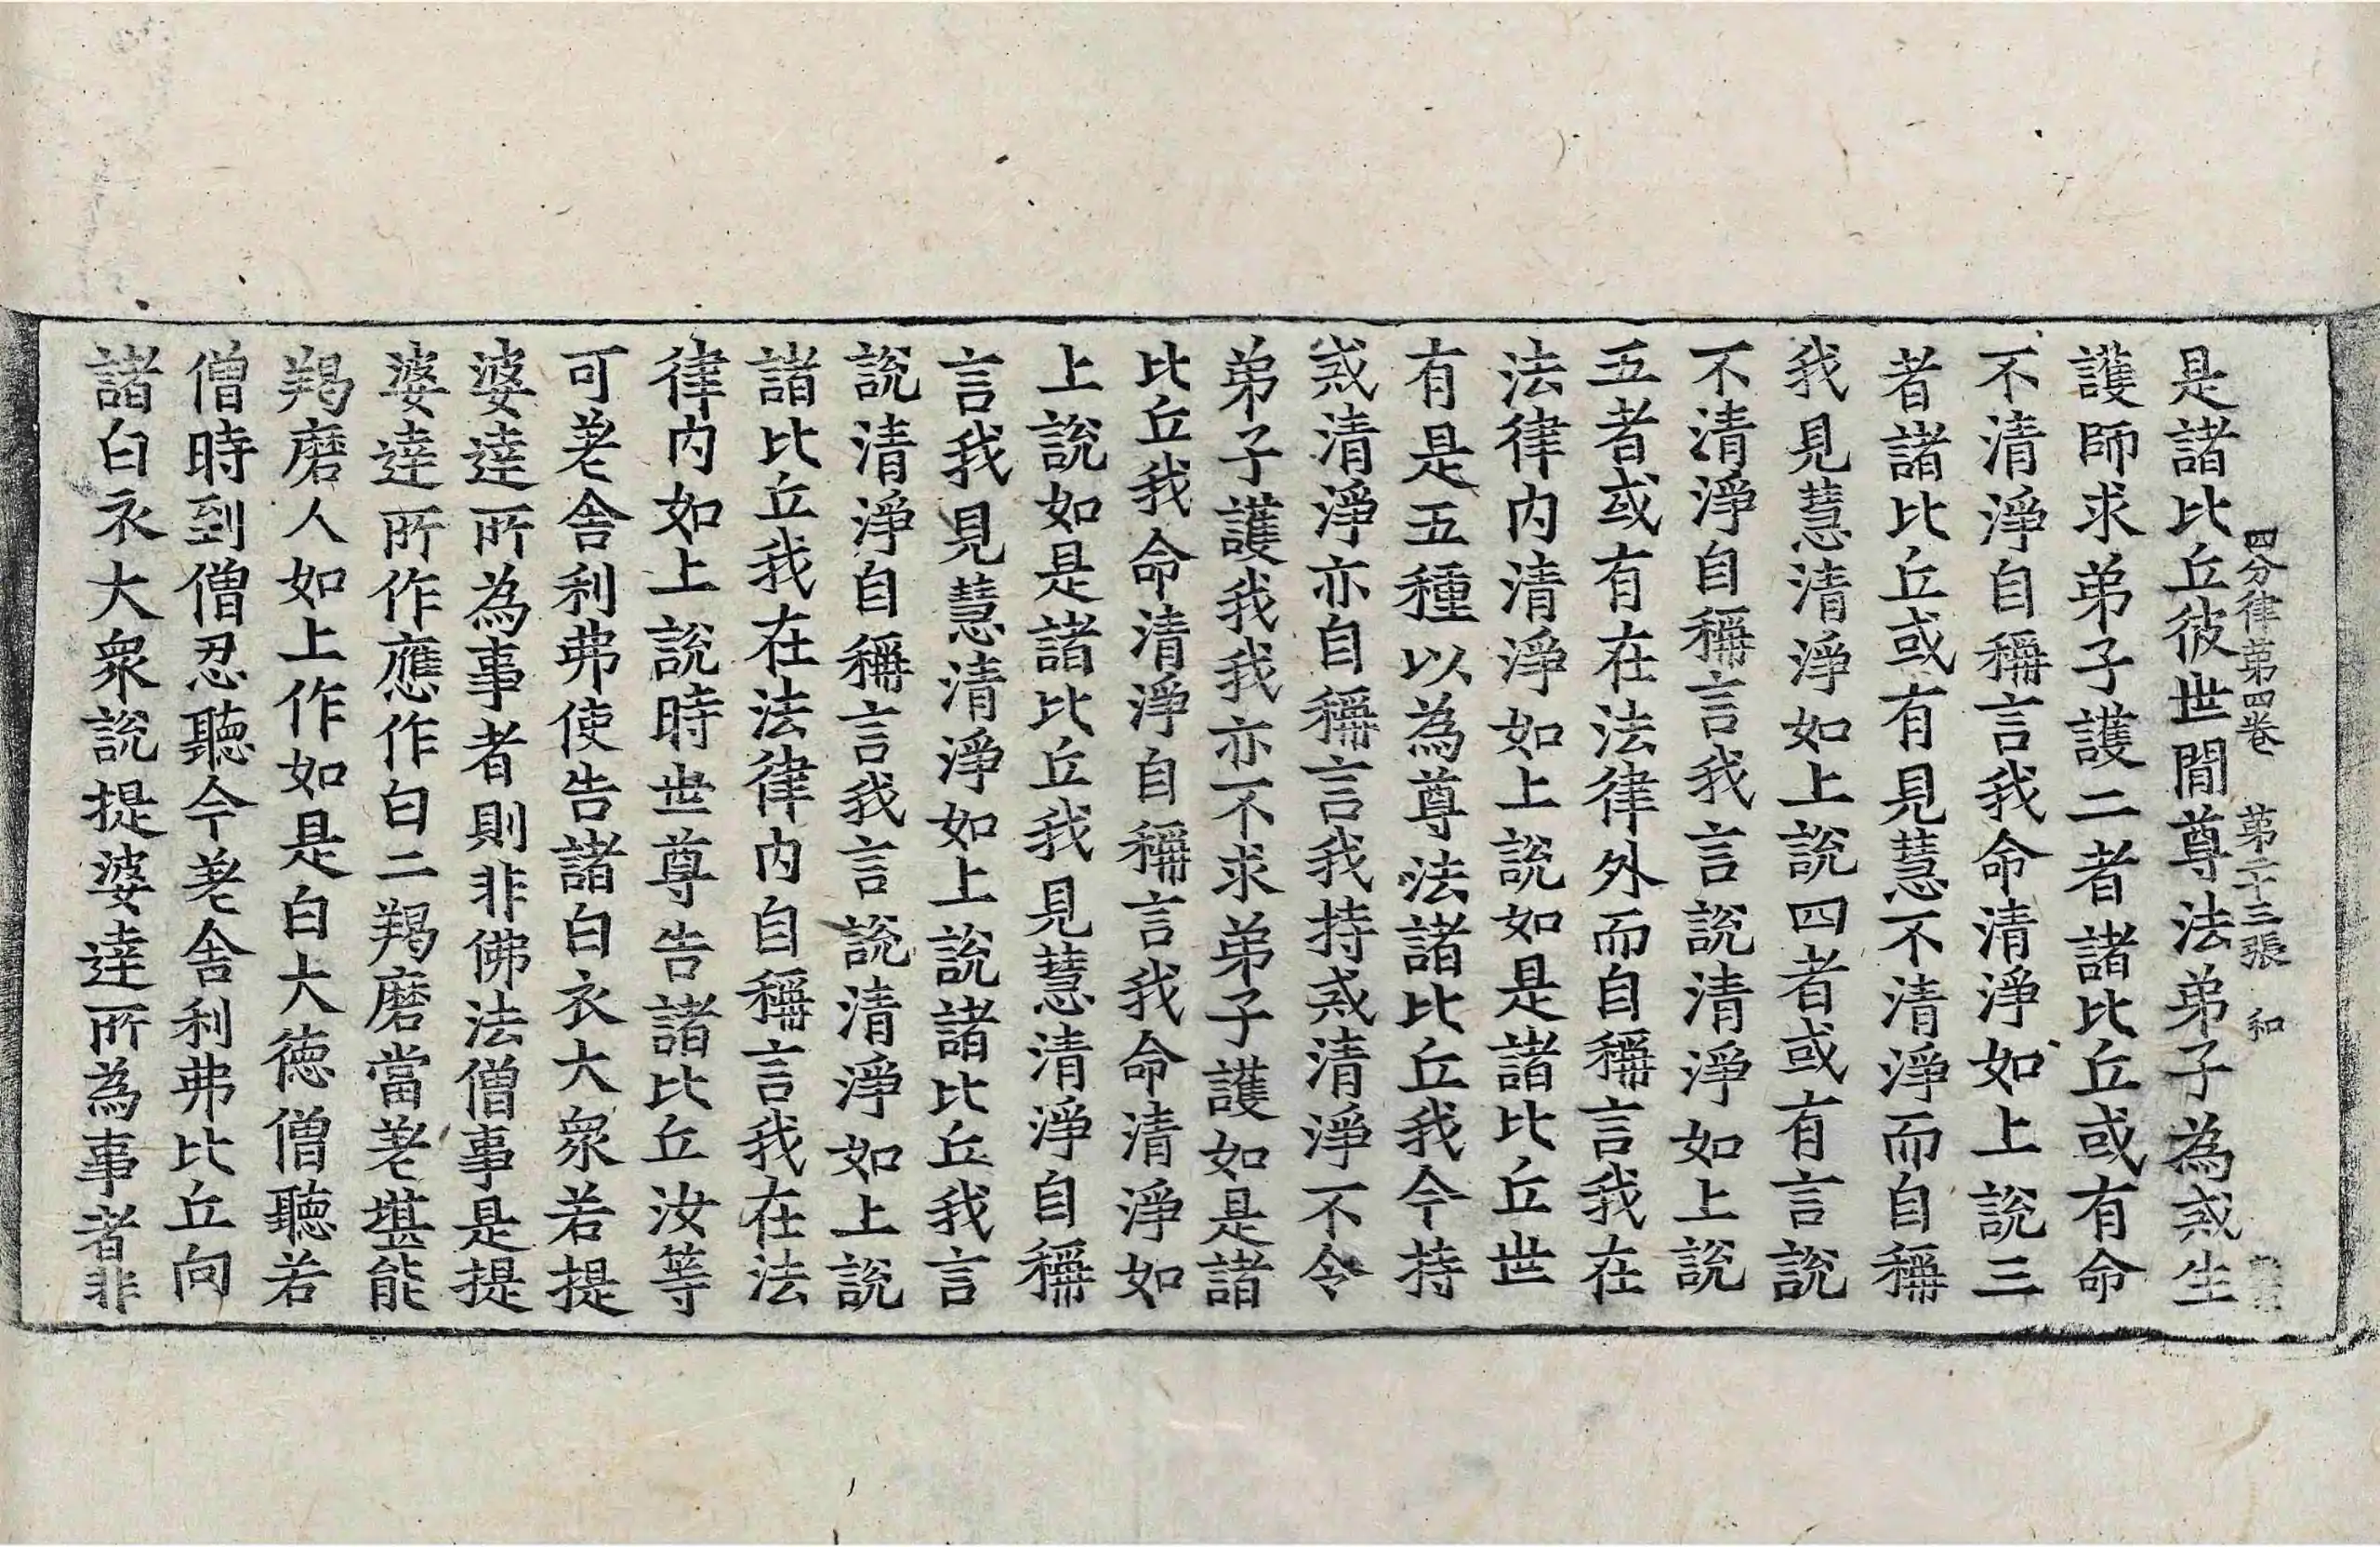 四分律第四卷 第二十三張 和
是諸比丘彼世閒尊法弟子為戒生
護師求弟子護二者諸比丘或有命
不清淨自稱言我命清淨如上說三
者諸比丘或有見慧不清淨而自稱
我見慧清淨如上說四者或有言說
不清淨自稱言我言說清淨如上說
五者或有在法律外而自稱言我在
法律內清淨如上說如是諸比丘世
有是五種以為尊法諸比丘我今持
戒清淨亦自稱言我持戒清淨不令
弟子護我我亦不求弟子護如是諸
比丘我命清淨自稱言我命清淨如
上說如是諸比丘我見慧清淨自稱
言我見慧清淨如上說諸比丘我言
說清淨自稱言我言說清淨如上說
諸比丘我在法律內自稱言我在法
律內如上說時世尊告諸比丘汝等
可差舍利弗使告諸白衣大眾若提
婆達所為事者則非佛法僧事是提
婆達所作應作白二羯磨當差堪能
羯磨人如上作如是白大德僧聽若
僧時到僧忍聽今差舍利弗比丘向
諸白衣大眾說提婆達所為事者非